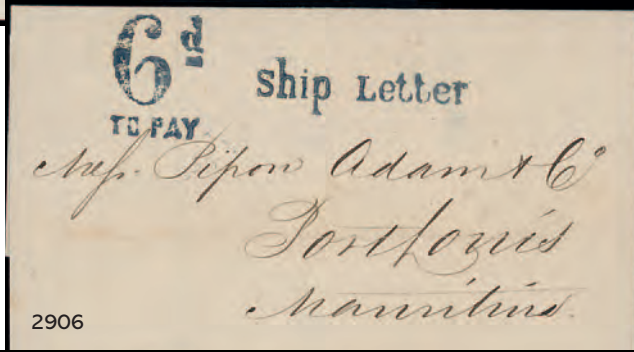 6d
TO PAY
Ship Letter
Mess. Pipon Adam & Co
Port Louis
Mauritius.
2906